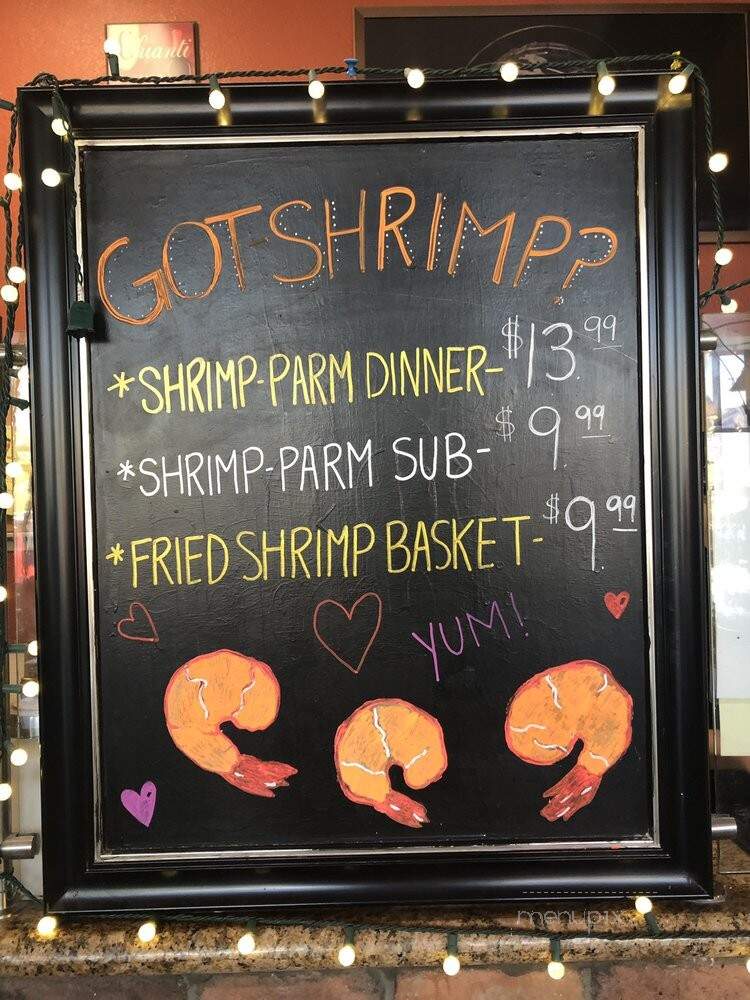 GOT SHRIMP?
*SHRIMP-PARM DINNER- $13.99
*SHRIMP-PARM SUB- $9.99
*FRIED SHRIMP BASKET- $9.99
YUM!
menupix